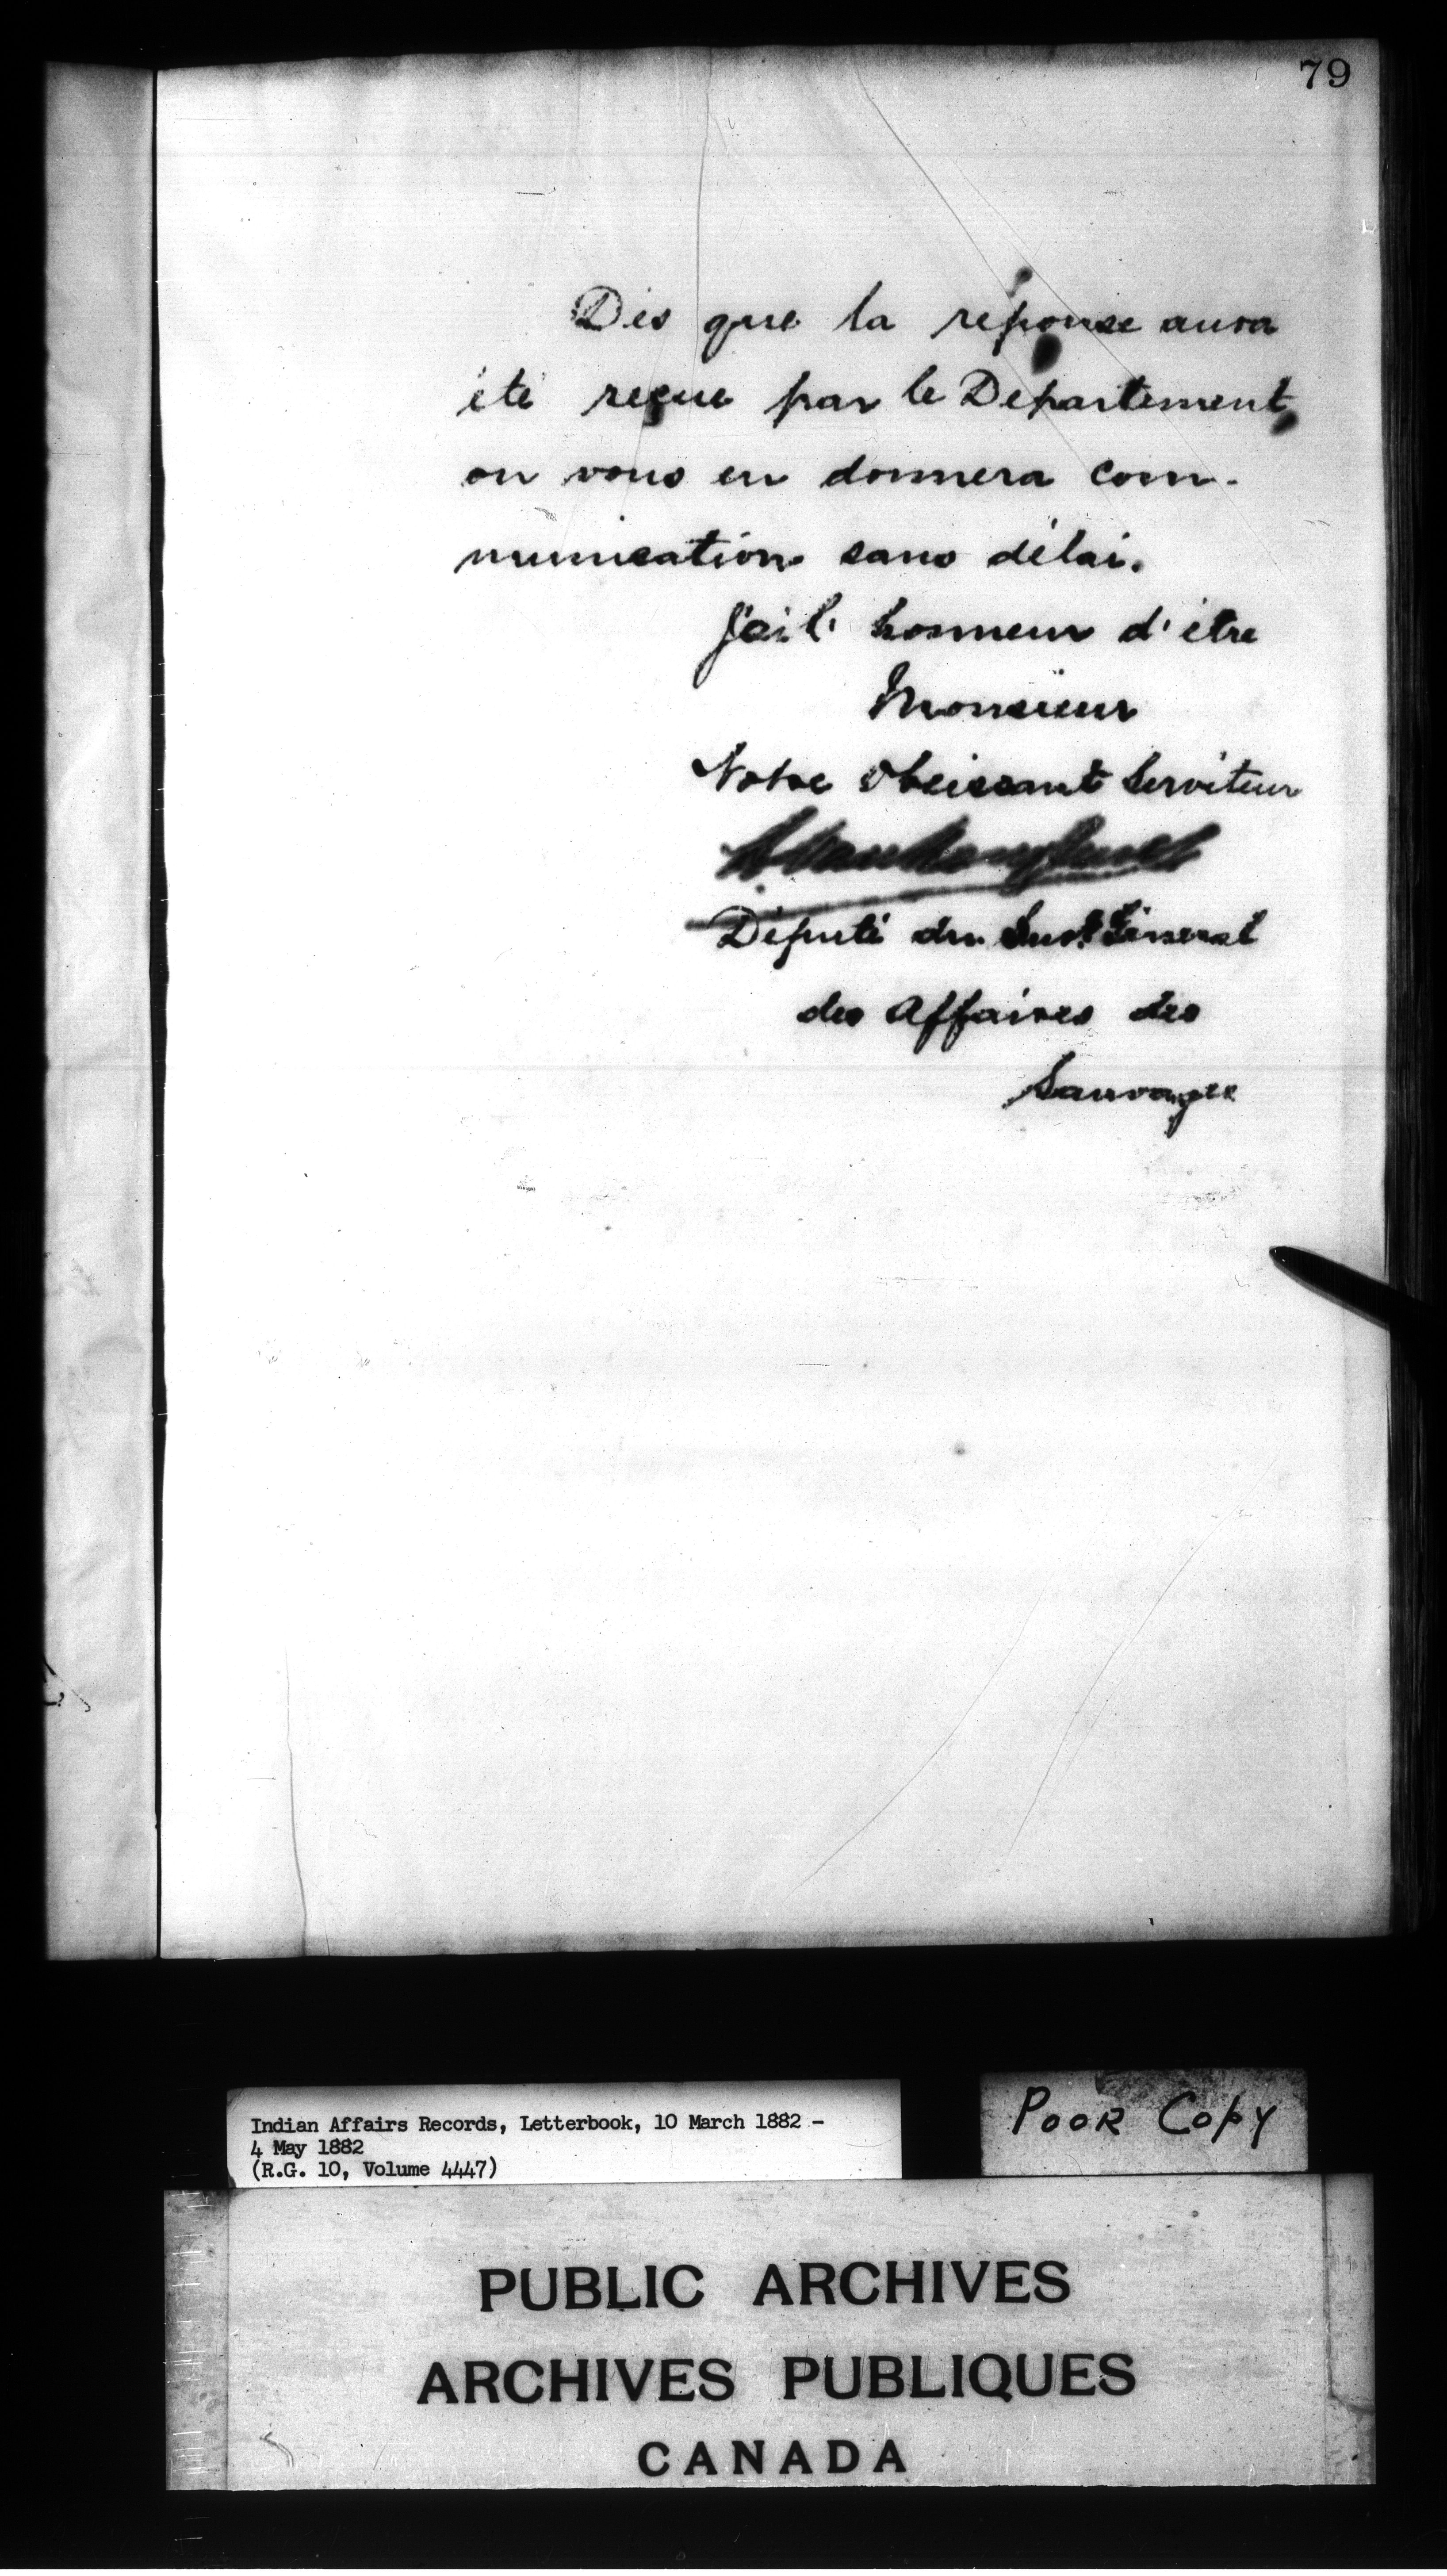 79
Dès que la réponse aura
été reçue par le Departement
on vous en donnera com-
munication sans délai.
J'ai l' honneur d' être
Monsieur
Votre Obeissant Serviteur
Député du Surt Géneral
des Affaires des
Sauvages
Indian Affairs Records, Letterbook, 10 March 1882 -
4 May 1882
(R.G. 10, Volume 4447)
POOR COPY
PUBLIC ARCHIVES
ARCHIVES PUBLIQUES
CANADA